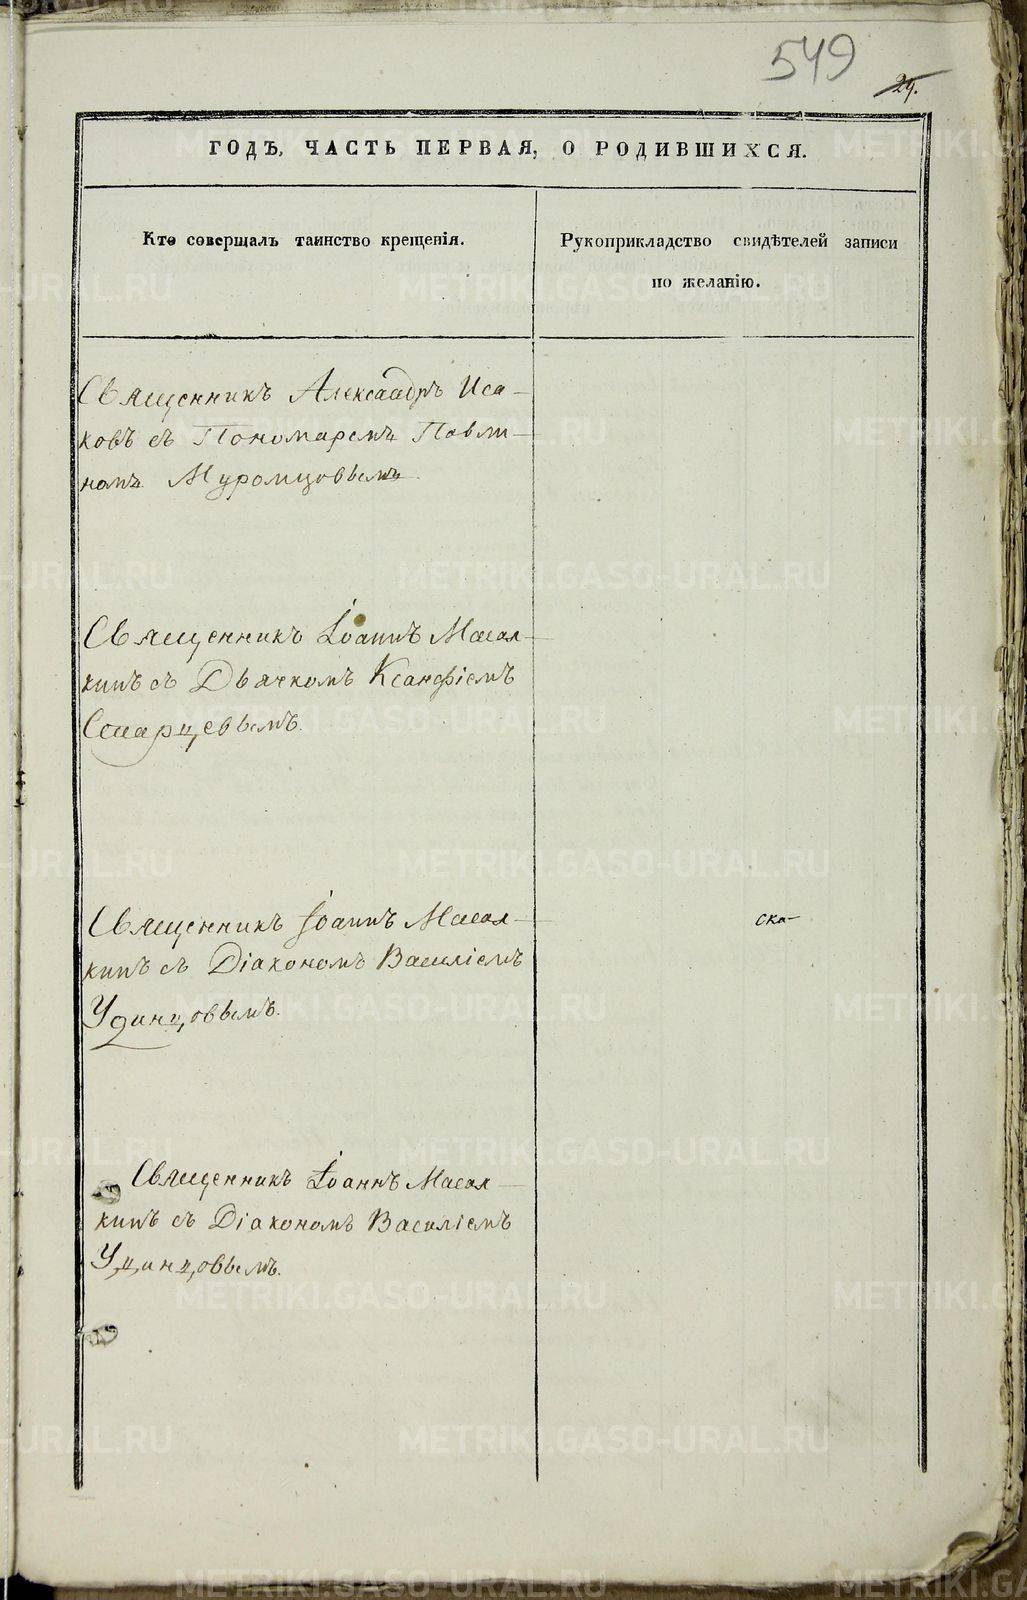 549
29.
ГОДѢ, ЧАСТЬ ПЕРВАЯ, О РОДИВШИХСЯ.
Кто совершалъ таинство крещенія.
Рукоприкладство свидѣтелей записи
по желанію.
Священникъ Александръ Иса-
ковъ съ Пономаремъ Павли-
номъ Муромцовымъ.
Священникъ Іоаннъ Масал-
кинъ съ Дьячкомъ Ксанфіемъ
Старцевымъ.
Священникъ Іоаннъ Масал-
кинъ съ Діакономъ Василіемъ
Удинцовымъ.
ска-
Священникъ Іоаннъ Масал-
кинъ съ Діакономъ Василіемъ
Удинцовымъ.
METRIKI.GASO-URAL.RU